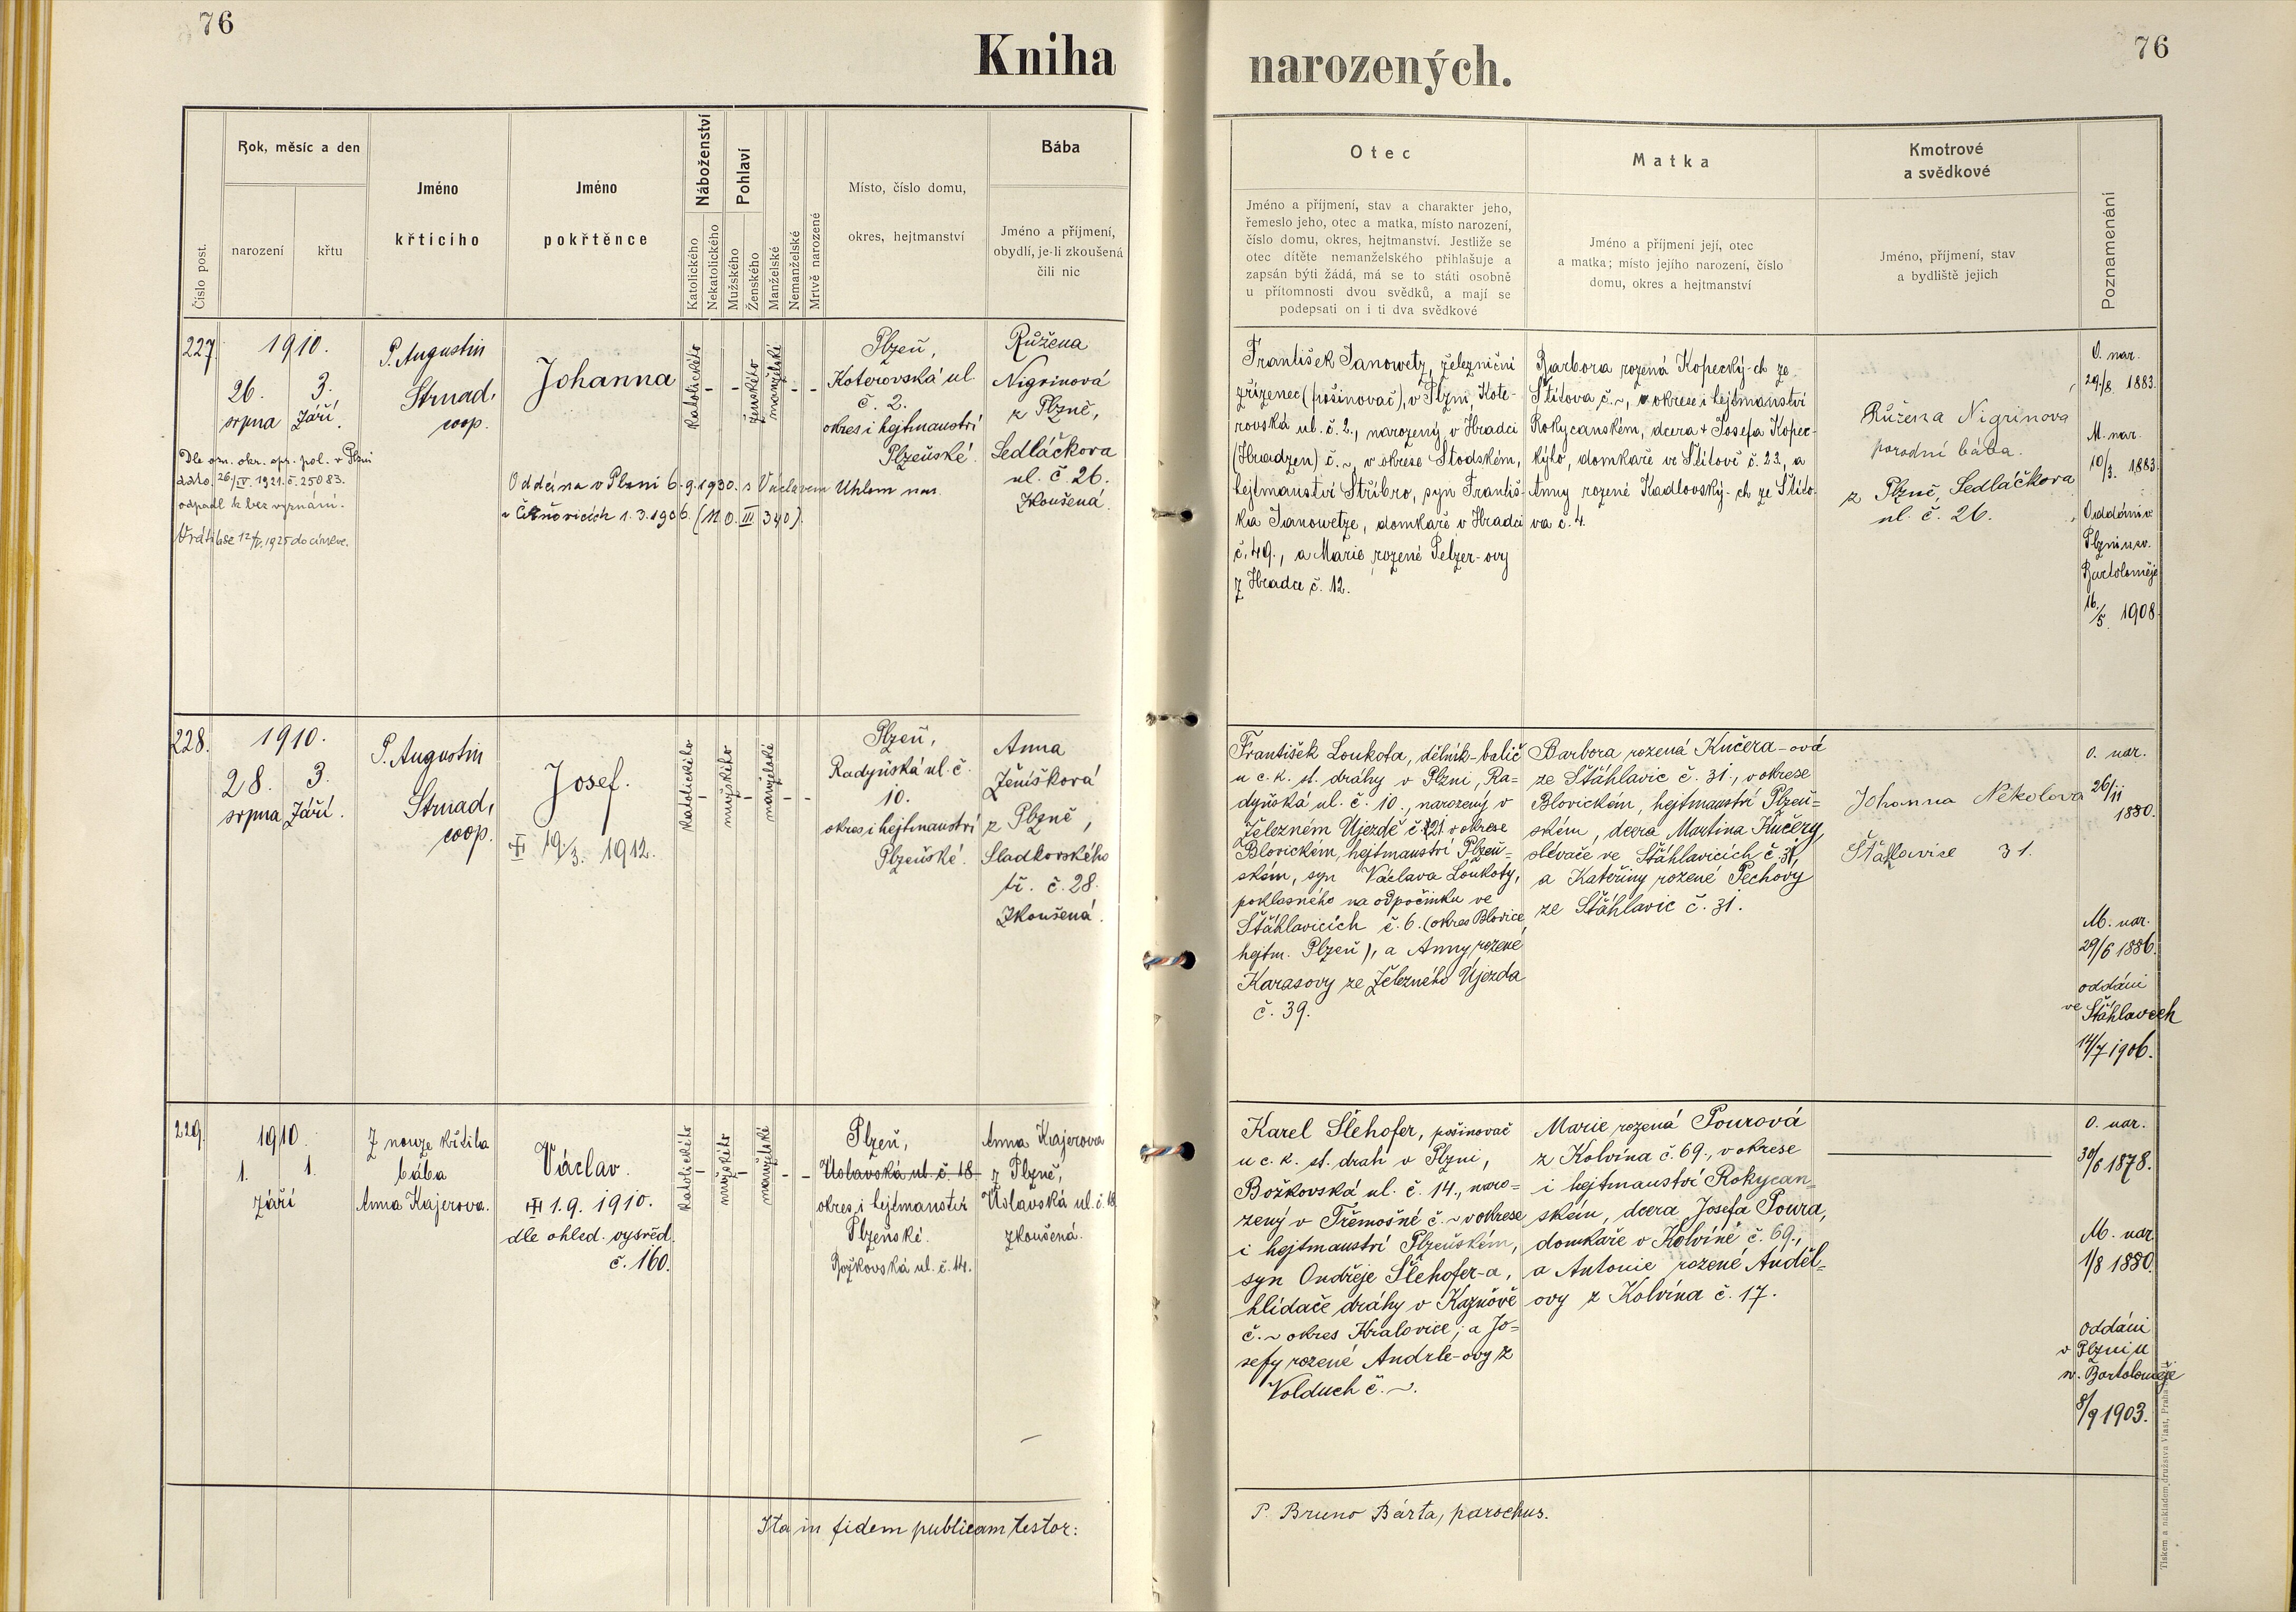 76
Kniha
Rok, měsíc a den
Bába
Číslo post.
narození
křtu
Jméno
křtícího
Jméno
pokřtěnce
Náboženství
Pohlaví
Katolického
Nekatolického
Mužského
Ženského
Manželské
Nemanželské
Mrtvě narozené
Místo, číslo domu,
okres, hejtmanství
Jméno a příjmení,
obydlí, je-li zkoušená
čili nic
227.
1910.
26.
srpna
3.
Září.
P. Augustin
Strnad,
coop.
Johanna
Katolického
-
-
ženského
manželské
-
-
Plzeň,
Koterovská ul.
č. 2.
okres i hejtmanství
Plzeňské.
Růžena
Nigrinová
z Plzně,
Sedláčkova
ul. č. 26.
Zkoušená.
Dle ozn. okr. spr. pol. v Plzni
dato. 26/IV. 1921. č. 25083.
odpadl k bez vyznání.
Vrátila se 12/V. 1925 do církve.
Oddána v Plzni 6.9.1930. s Václavem Uhlem nar.
v Černovicích 1.3.1906. (110. III 340).
228.
1910.
28.
srpna
3.
Září.
P. Augustin
Strnad,
coop.
Josef.
19/3. 1912.
Katolického
-
mužského
-
manželské
-
-
Plzeň,
Radyňská ul. č.
10.
okres i hejtmanství
Plzeňské.
Anna
Ženíšková
z Plzně,
Sladkovského
tř. č. 28.
Zkoušená.
229.
1910.
1.
září
1.
Z nouze křtila
bába
Anna Kajerova.
Václav.
1.9. 1910.
dle ohled. vysvěd.
č. 160.
Katolického
-
mužského
-
manželské
-
-
Plzeň,
Úslavská ul. č. 18
okres i hejtmanství
Plzeňské.
Božkovská ul. č. 14.
Anna Kajerova
z Plzně,
Úslavská ul. č. 18
zkoušená.
Ita in fidem publicam testor:
76
narozených.
Otec
Matka
Kmotrové
a svědkové
Poznamenání
Jméno a příjmení, stav a charakter jeho,
řemeslo jeho, otec a matka, místo narození,
číslo domu, okres, hejtmanství. Jestliže se
otec dítěte nemanželského přihlašuje a
zapsán býti žádá, má se to státi osobně
u přítomnosti dvou svědků, a mají se
podepsati on i ti dva svědkové
Jméno a příjmení její, otec
a matka; místo jejího narození, číslo
domu, okres a hejtmanství
Jméno, příjmení, stav
a bydliště jejich
František Janowetz, železniční
zřízenec (pošinovač), v Plzni, Kote-
rovská ul. č. 2., narozený v Hradci
(Hradzen) č. ~, v okrese Stodském,
hejtmanství Stříbro, syn Františ-
ka Janowetze, domkaře v Hradci
č. 49., a Marie rozené Pelzer-ovy
z Hradce č. 12.
Barbora rozená Kopecký-ch ze
Štítova č. ~, v okrese i hejtmanství
Rokycanském, dcera + Josefa Kopec-
kýho, domkaře ve Štítově č. 23., a
Anny rozené Kadlovský-ch ze Štíto-
va č. 4.
Růžena Nigrinova
porodní bába.
z Plzně, Sedláčkova
ul. č. 26.
O. nar.
29./8. 1883.
M. nar.
10/3. 1883.
Oddáni v
Plzni u sv.
Bartoloměje
16./5. 1908.
František Loukota, dělník-balič
u c. k. st. dráhy v Plzni, Ra-
dyňská ul. č. 10., narozený v
Železném Újezdě č. 21 v okrese
Blovickém, hejtmanství Plzeň-
ském, syn Václava Loukoty,
poklasného na odpočinku ve
Šťáhlavicích č. 6. (okres Blovice,
hejtm. Plzeň), a Anny rozené
Karasovy ze Železného Újezda
č. 39.
Barbora rozená Kučera-ová
ze Šťáhlavic č. 31., v okrese
Blovickém, hejtmanství Plzeň-
ském, dcera Martina Kučery,
slévače ve Šťáhlavicích č. 31,
a Kateřiny rozené Pechovy
ze Šťáhlavic č. 31.
Johanna Nekolova
Šťahlavice 31.
O. nar.
26/11
1880.
M. nar.
29/6 1886.
oddáni
ve Šťáhlavech
14/7 1906.
Karel Šlehofer, pošinovač
u c. k. st. drah v Plzni,
Božkovská ul. č. 14., naro-
zený v Třemošné č. ~ v okrese
i hejtmanství Plzeňském,
syn Ondřeje Šlehofer-a,
hlídače dráhy v Kazňově
č. ~ okres Kralovice, a Jo-
sefy rozené Andrle-ovy z
Volduch č. ~.
Marie rozená Pourová
z Kolvína č. 69., v okrese
i hejtmanství Rokycan-
ském, dcera Josefa Poura,
domkaře v Kolvíně č. 69.,
a Antonie rozené Anděl-
ovy z Kolvína č. 17.
O. nar.
30/6 1878.
M. nar.
1/8 1880.
Oddáni
v Plzni u
sv. Bartoloměje
8/9 1903.
P. Bruno Bárta, parochus.
Tiskem a nákladem družstva Vlast, Praha